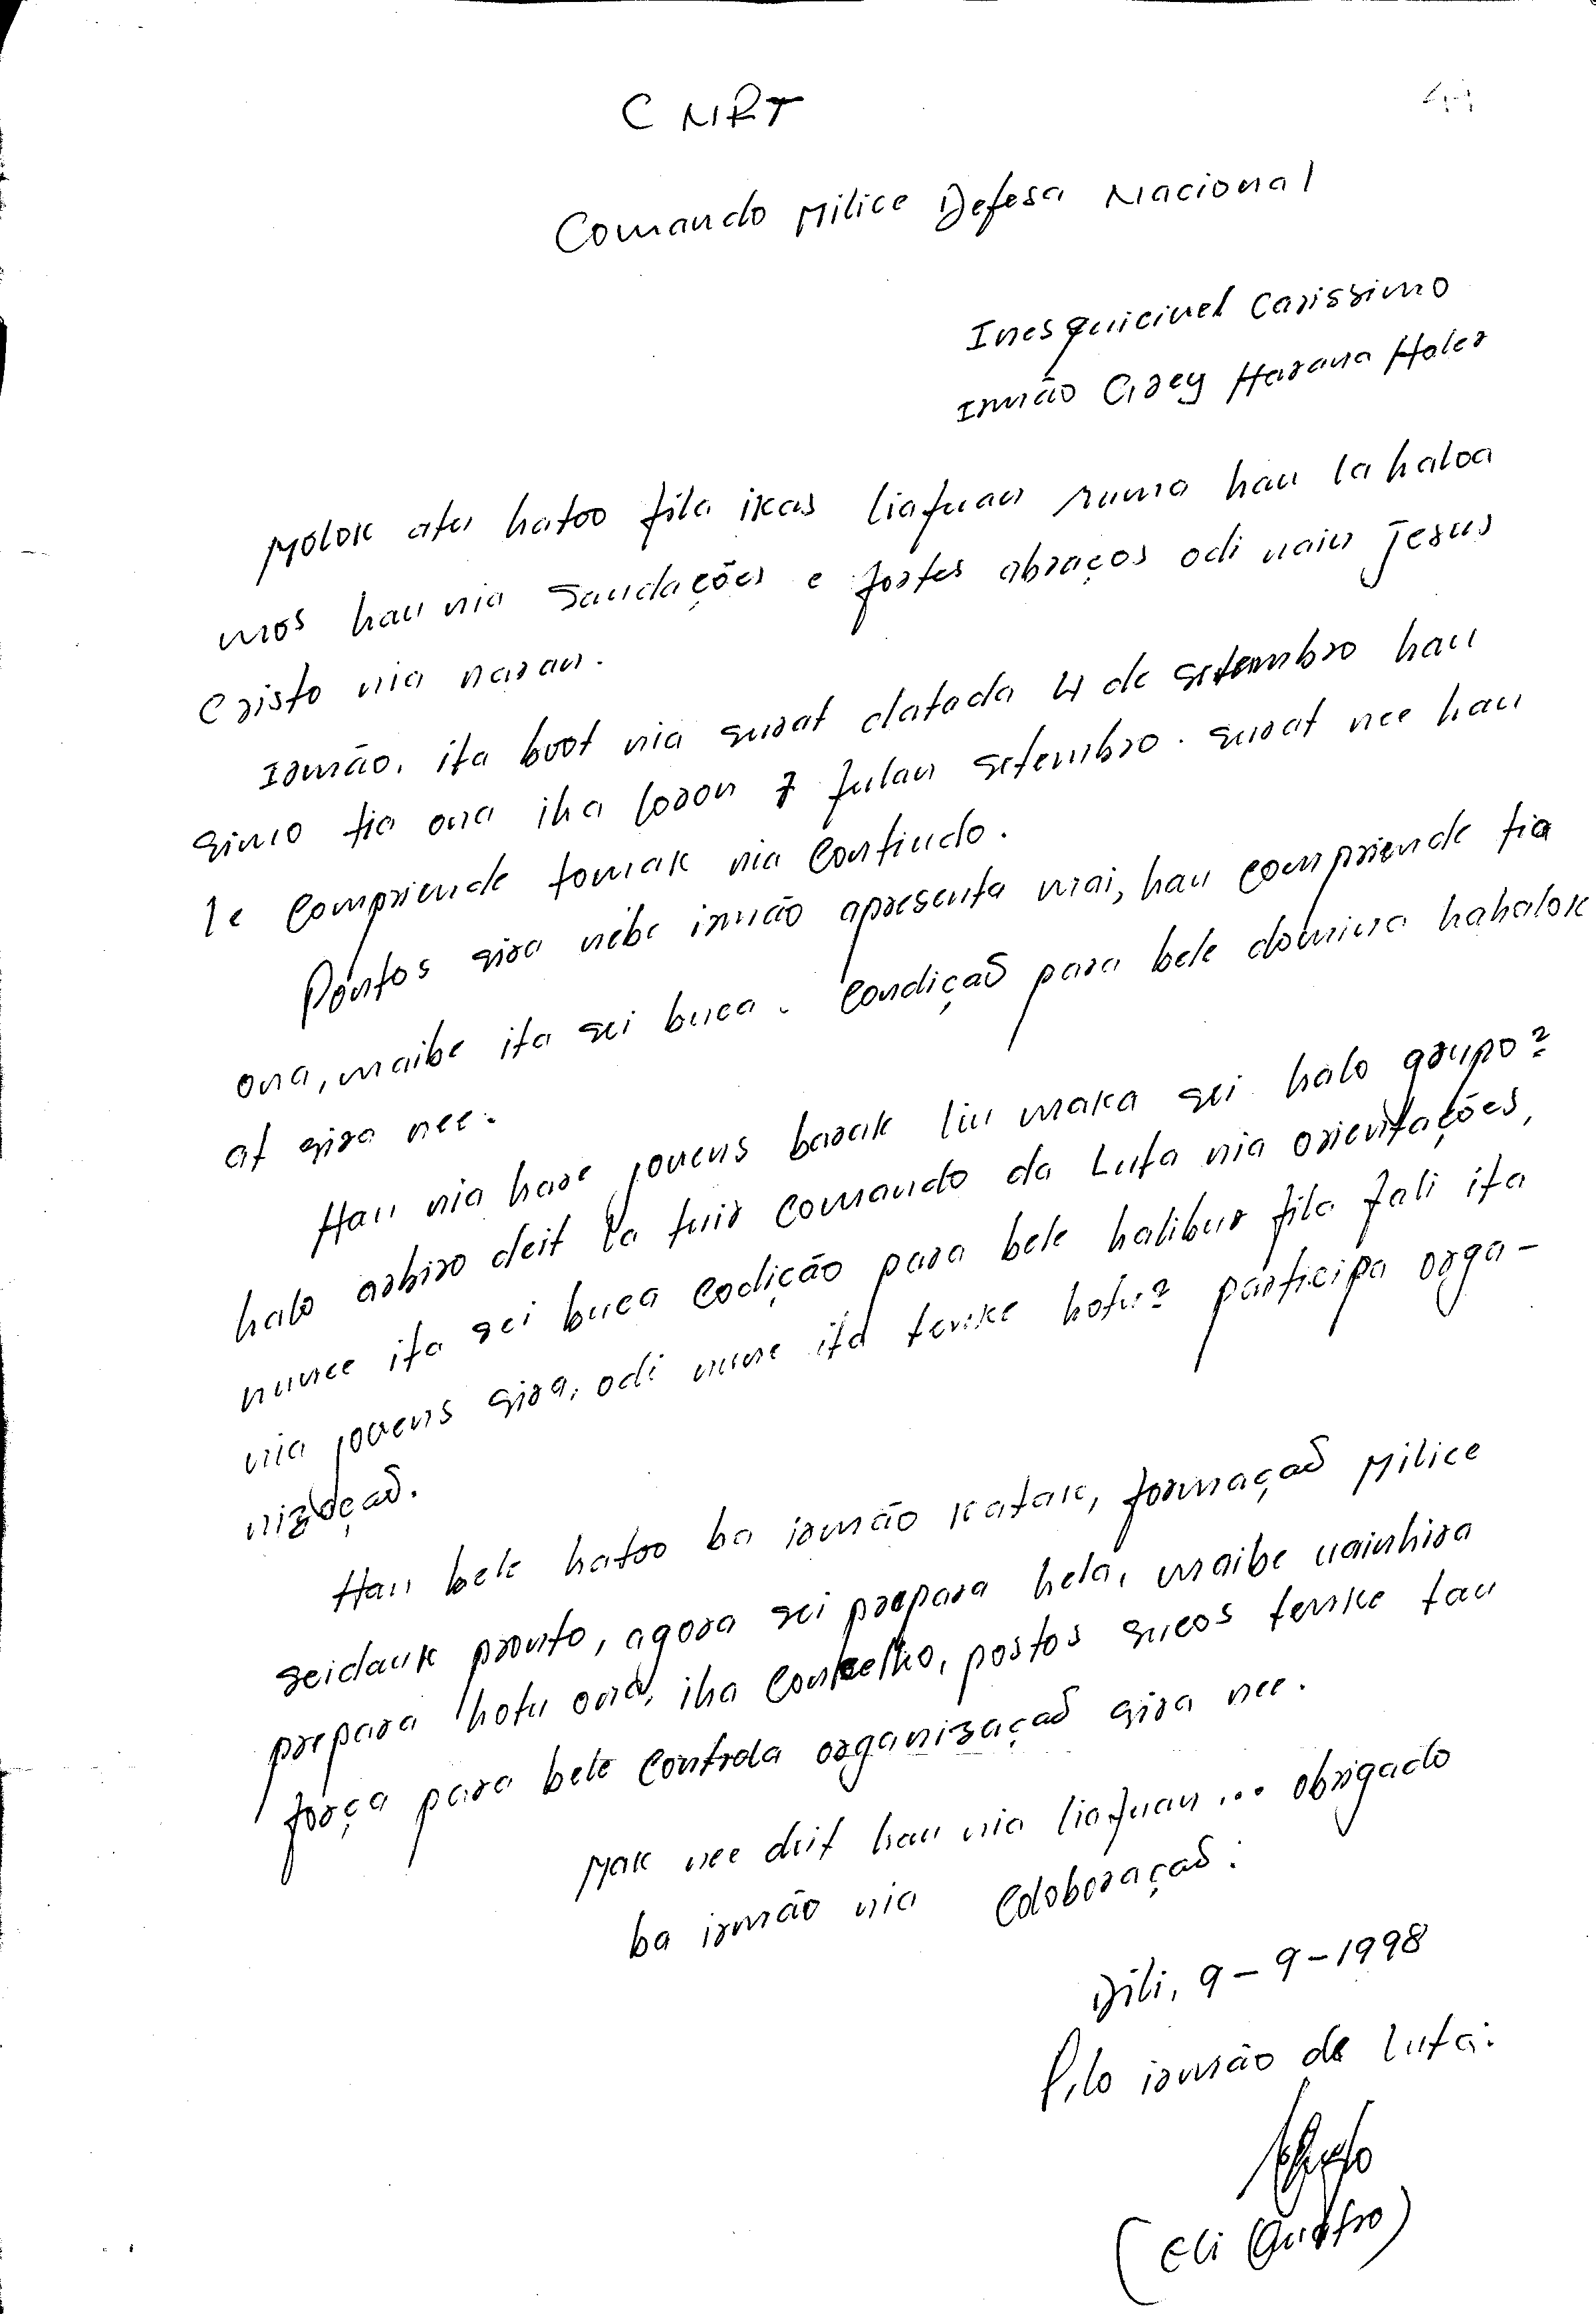 CNRT
Comando Milice Defesa Nacional
Inesquicivel Carissimo
Irmão Grey Harana Haler
Molok atu hatoo fila ikas liafuan ruma hau la haloa
mos hau nia Saudações e fortes abraços odi nain Jesus
Cristo nia naran.
Irmão, ita boot nia surat datada 4 de Setembro hau
simo tia ona iha loron 7 fulan setembro. surat nee hau
le Compriende tomak nia Contiudo.
Pontos sira nebe irmão apresenta mai, hau compriende tia
ona, maibe ita sei buca. Condição para bele domina hahalok
at sira nee.
Hau nia hare jovens barak liu maka sei halo grupo?
halo arbiro deit la tuir Comando da Luta nia orientações,
nunee ita sei buca codição para bele halibur fila fali ita
nia jovens sira, odi nune ita tenke hotu? participa orga-
nização.
Hau bele hatoo ba irmão katak, formação Milice
seidauk pronto, agora sei prepara hela, maibe nainhira
prepara hotu ona, iha Conselho, postos sucos tenke tau
força para bele Controla organização sira nee.
Mak nee deit hau nia liafuan... obrigado
ba irmão nia Coloboração:
Dili, 9-9-1998
Pilo irmão de luta:
(Eli Quatro)